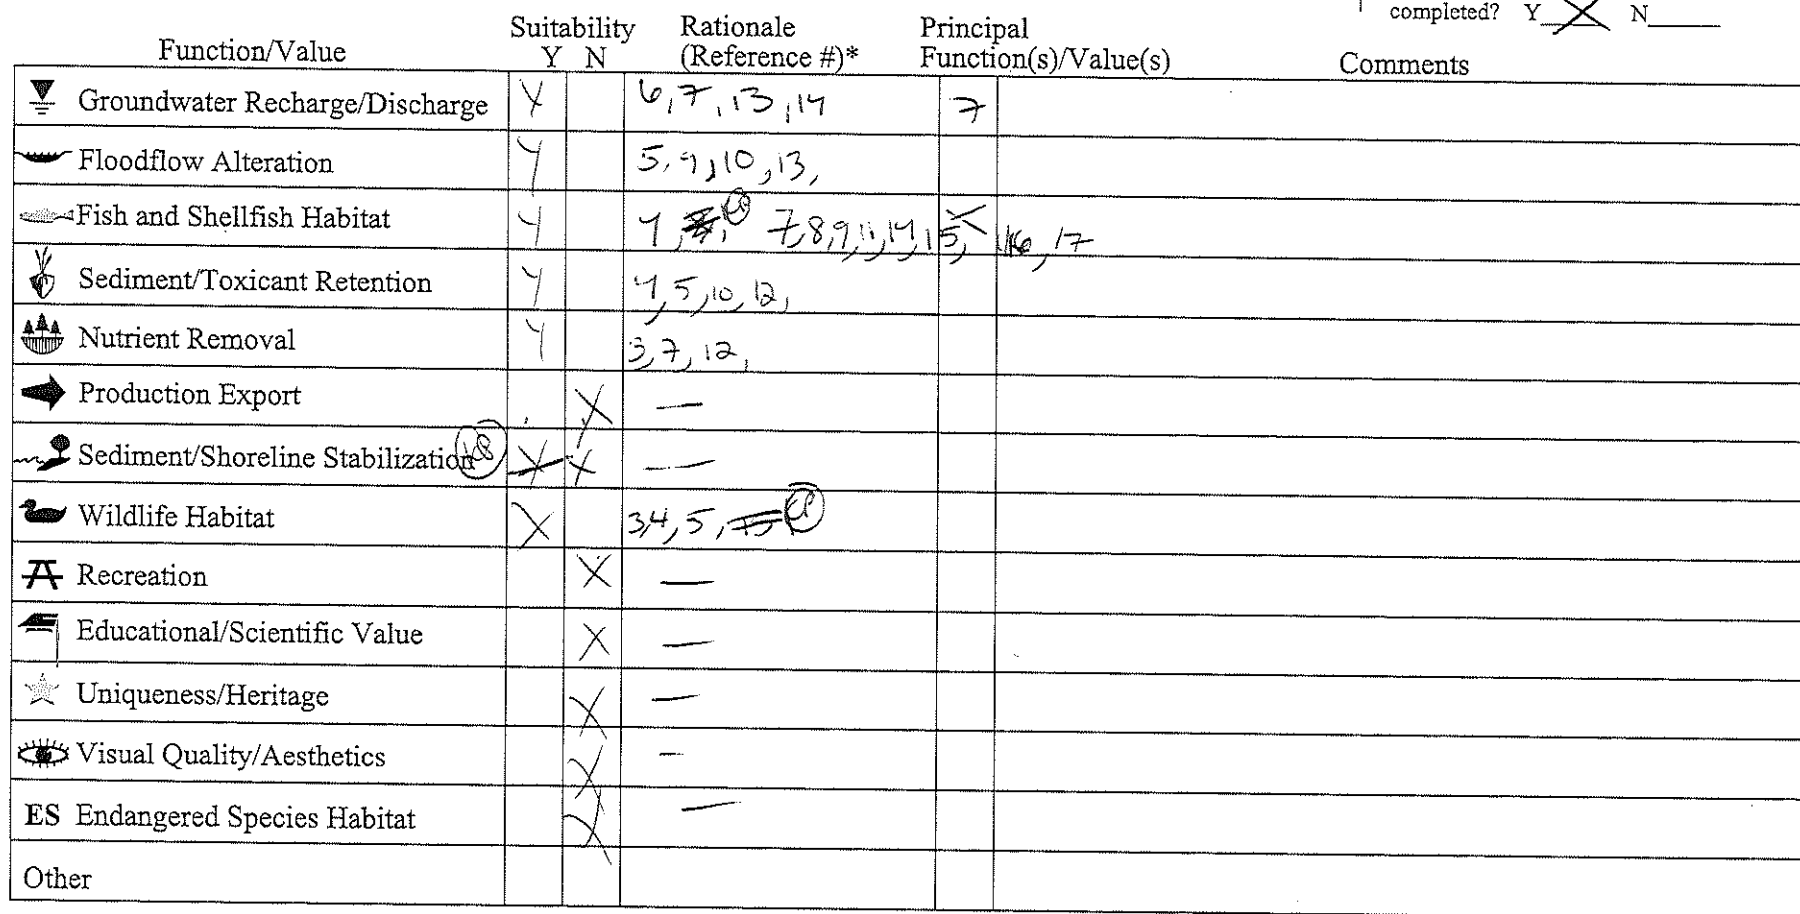 completed? Y X N
Suitability Rationale Principal
Function/Value Y N (Reference #)* Function(s)/Value(s) Comments
Groundwater Recharge/Discharge Y 6, 7, 13, 14 7
Floodflow Alteration Y 5, 9, 10, 13,
Fish and Shellfish Habitat Y 4, 7, 8, 9, 11, 14, 15, X 16, 17
Sediment/Toxicant Retention Y 4, 5, 10, 12,
Nutrient Removal Y 3, 7, 12,
Production Export X —
Sediment/Shoreline Stabilization X X —
Wildlife Habitat X 3, 4, 5,
Recreation X —
Educational/Scientific Value X —
Uniqueness/Heritage X —
Visual Quality/Aesthetics X -
ES Endangered Species Habitat X —
Other